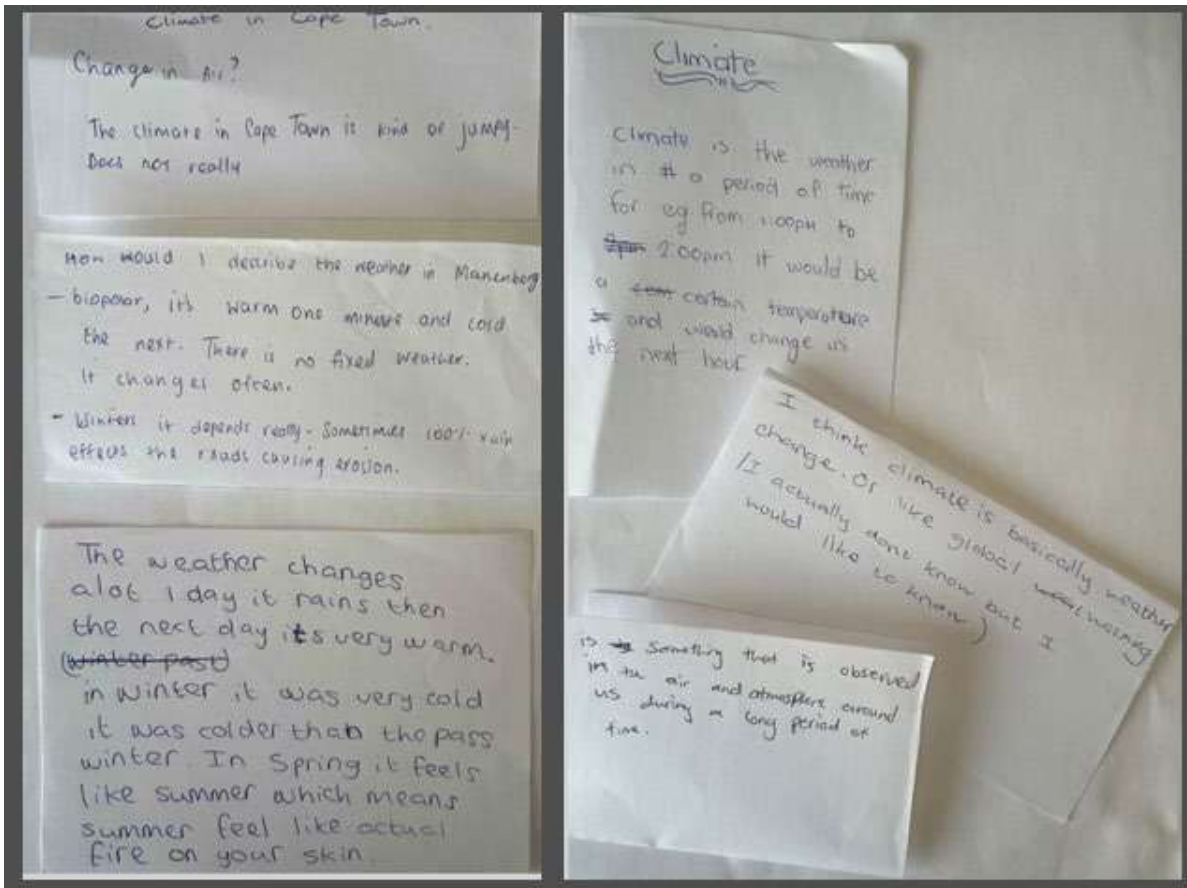 Climate in Cape Town.
Change in Air?
The climate in Cape Town is kind of jumpy.
Does not really
How would I decribe the weather in Manenberg
- bipolar, its warm one minute and cold
the next. There is no fixed weather.
It changes often.
- Winters it depends really. Sometimes 100% rain
effects the roads causing erosion.
The weather changes
alot 1 day it rains then
the next day its very warm.
(winter past)
in winter it was very cold
it was colder than the pass
winter. In Spring it feels
like summer which means
summer feel like actual
fire on your skin
Climate
Climate is the weather
in a period of time
for eg from 1:00pm to
2pm 2:00pm it would be
a certain temperature
and would change in
the next hour
I think climate is basically weather
change. Or like global warming
(I actually dont know but I
would like to know)
is something that is observed
in the air and atmosphere around
us during a long period of
time.